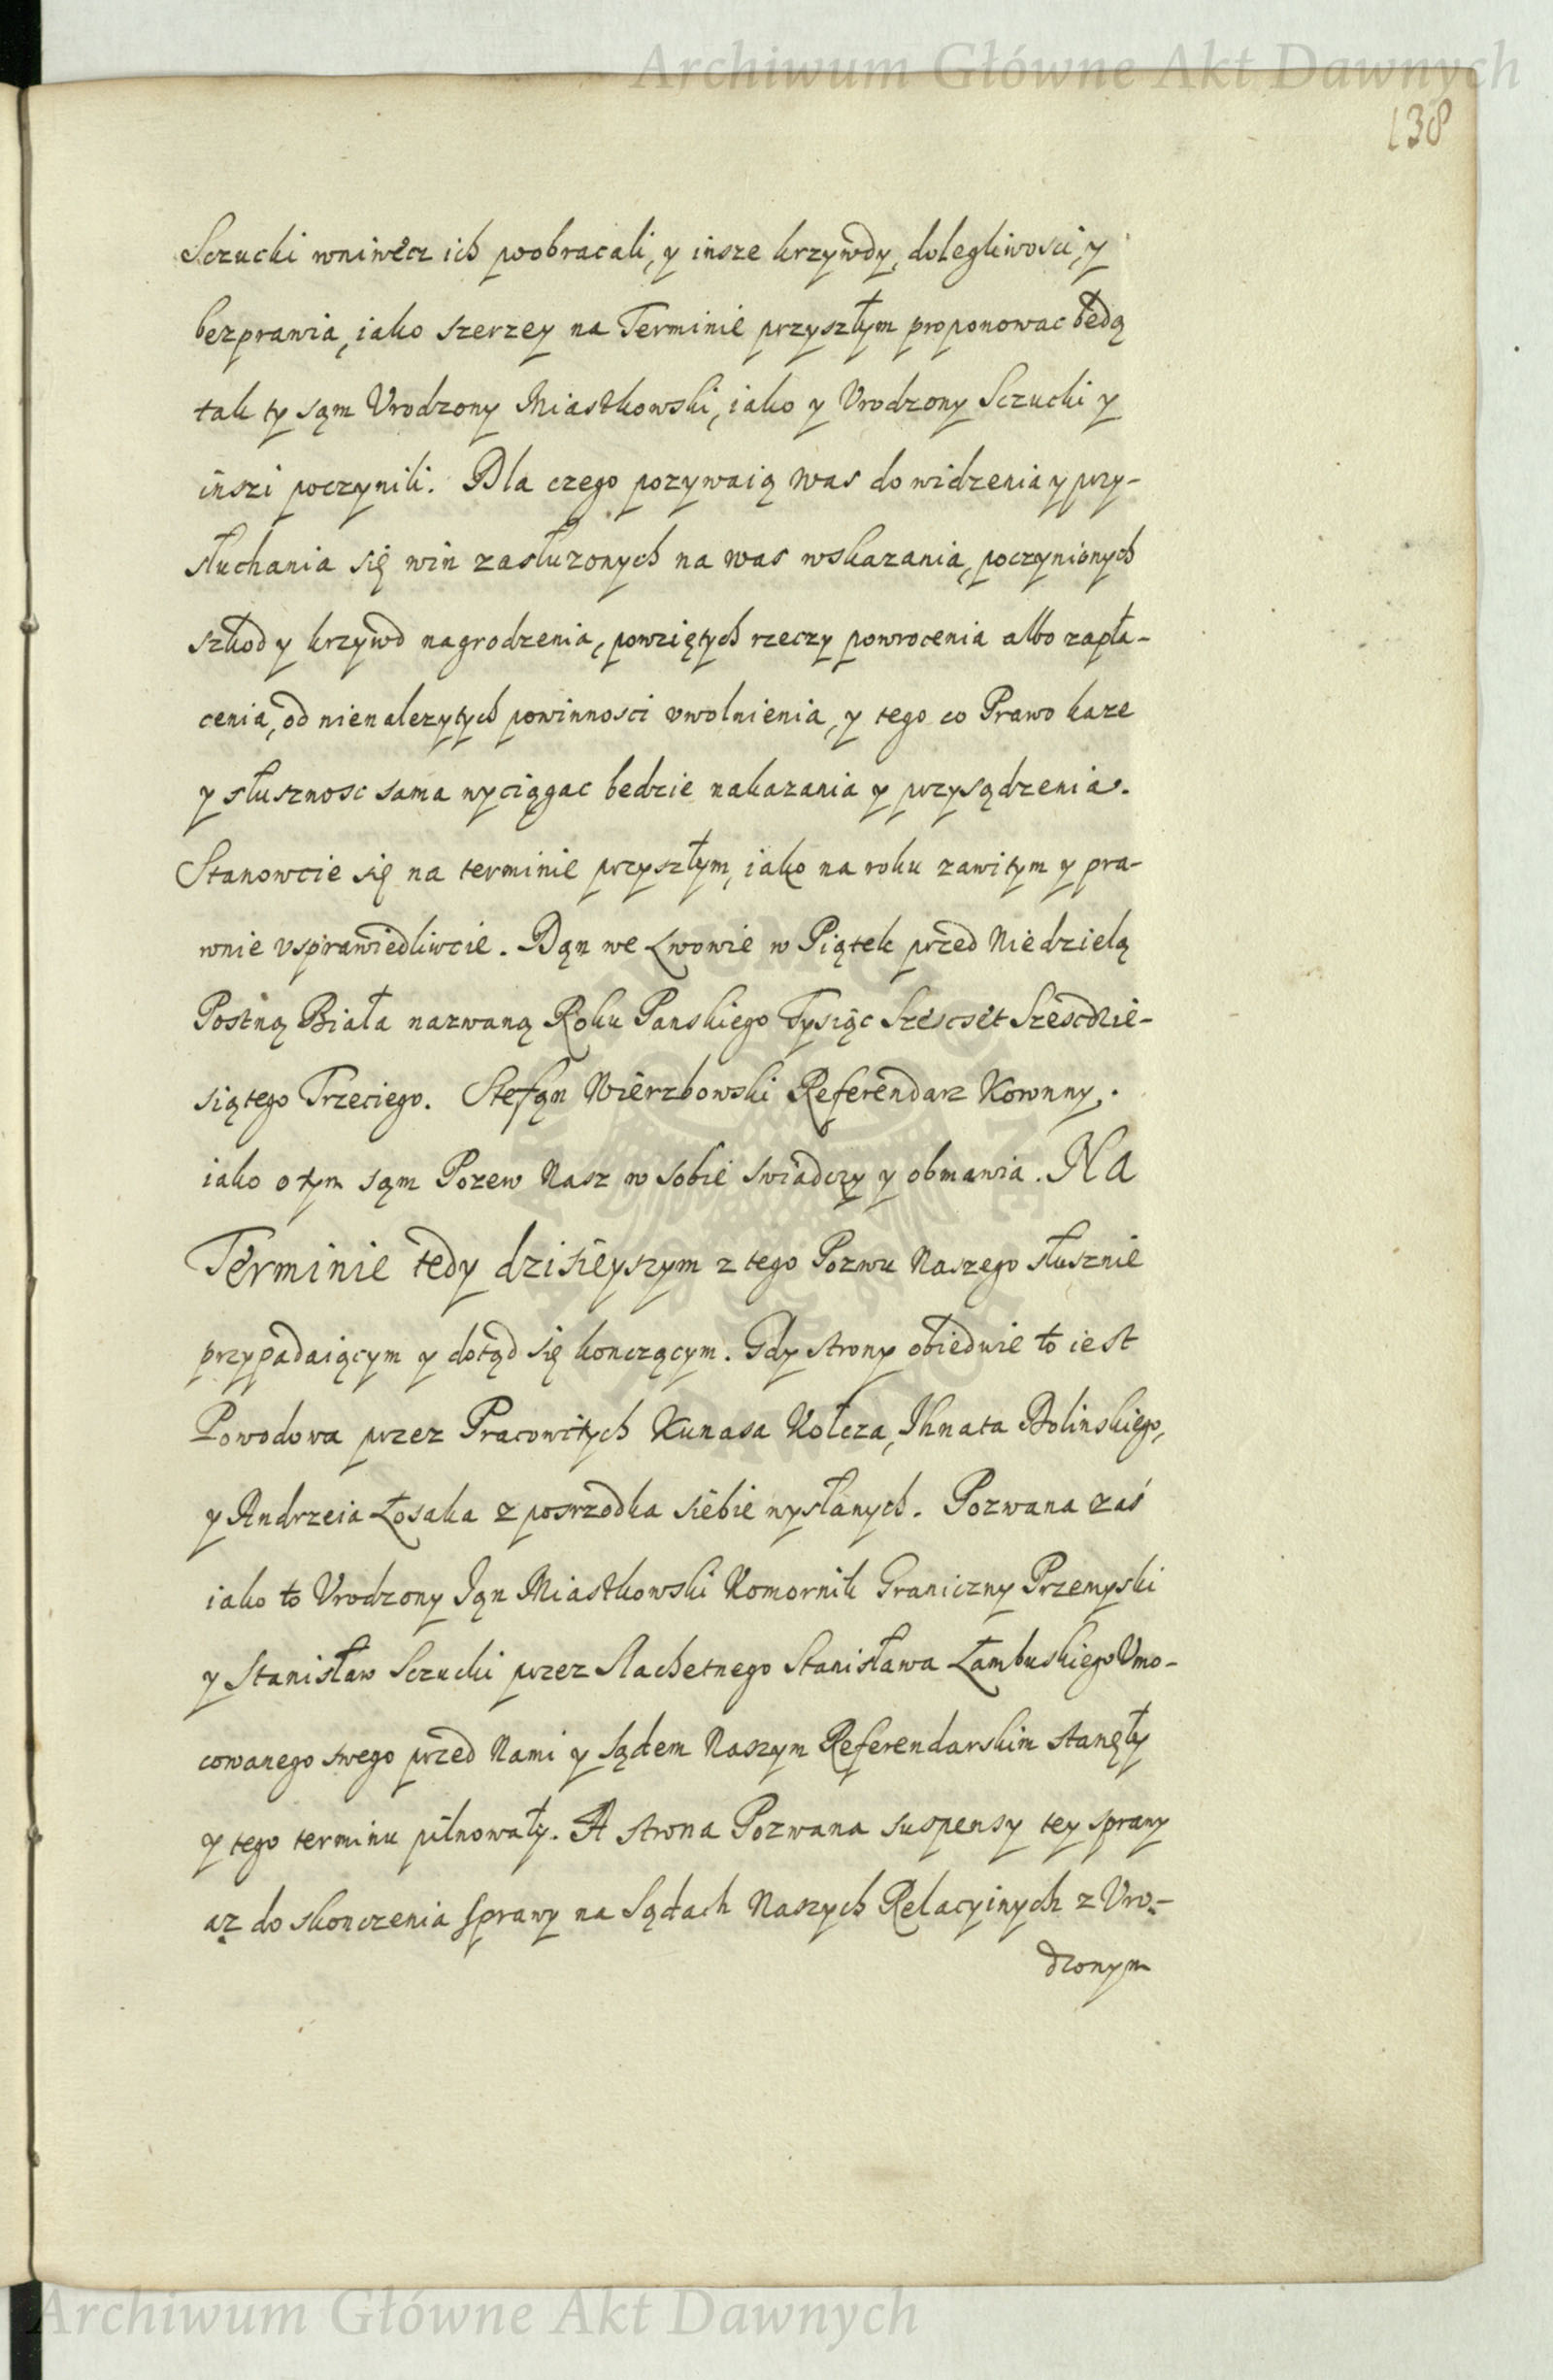 Archiwum Główne Akt Dawnych
138
Sczucki wniwecz ich poobracali, y insze krzywdy, dolegliwosci, y
bezprawia, iako szerzey na Terminie przyszłym proponowac będą
tak ty sąm Vrodzony Miastkowski, iako y Vrodzony Sczucki y
inszi poczynili. Dla czego pozywaią was do widzenia y przy-
słuchania się win zasłuzonych na was wskazania, poczynionych
szkod y krzywd nagrodzenia, powziętych rzeczy powrocenia albo zapła-
cenia, od nienalezytych powinnosci vwolnienia, y tego co Prawo kaze
y słusznosc sama wyciągac bedzie nakazania y przysądzenia.
Stanowcie się na terminie przyszłym, iako na roku zawitym y pra-
wnie vsprawiedliwcie. Dąn we Lwowie w Piątek przed Niedzielą
Postną Biała nazwaną Roku Panskiego Tysiąc Szescset Szescdzie-
siątego Trzeciego. Stefąn Wierzbowski Referendarz Koronny,.
iako o tym sąm Pozew Nasz w sobie swiadczy y obmawia. Na
Terminie tedy dzisieyszym z tego Pozwu Naszego słusznie
przypadaiącym y dotąd się konczącym. Gdy strony obiedwie to iest
Powodowa przez Pracowitych Kunasa Kołcza, Ihnata Bolinskiego,
y Andrzeia Łosaka z posrzodka siebie wysłanych. Pozwana zaś
iako to Vrodzony Ján Miastkowski Komornik Graniczny Przemyski
y Stanisław Sczucki przez Slachetnego Stanisława Łambuskiego Vmo-
cowanego swego przed Nami y Sądem Naszym Referendarskim stanęły
y tego terminu pilnowały. A strona Pozwana suspensy tey sprawy
aż do skonczenia sprawy na Sądach Naszych Relacyinych z Vro-
dzonym
Archiwum Główne Akt Dawnych